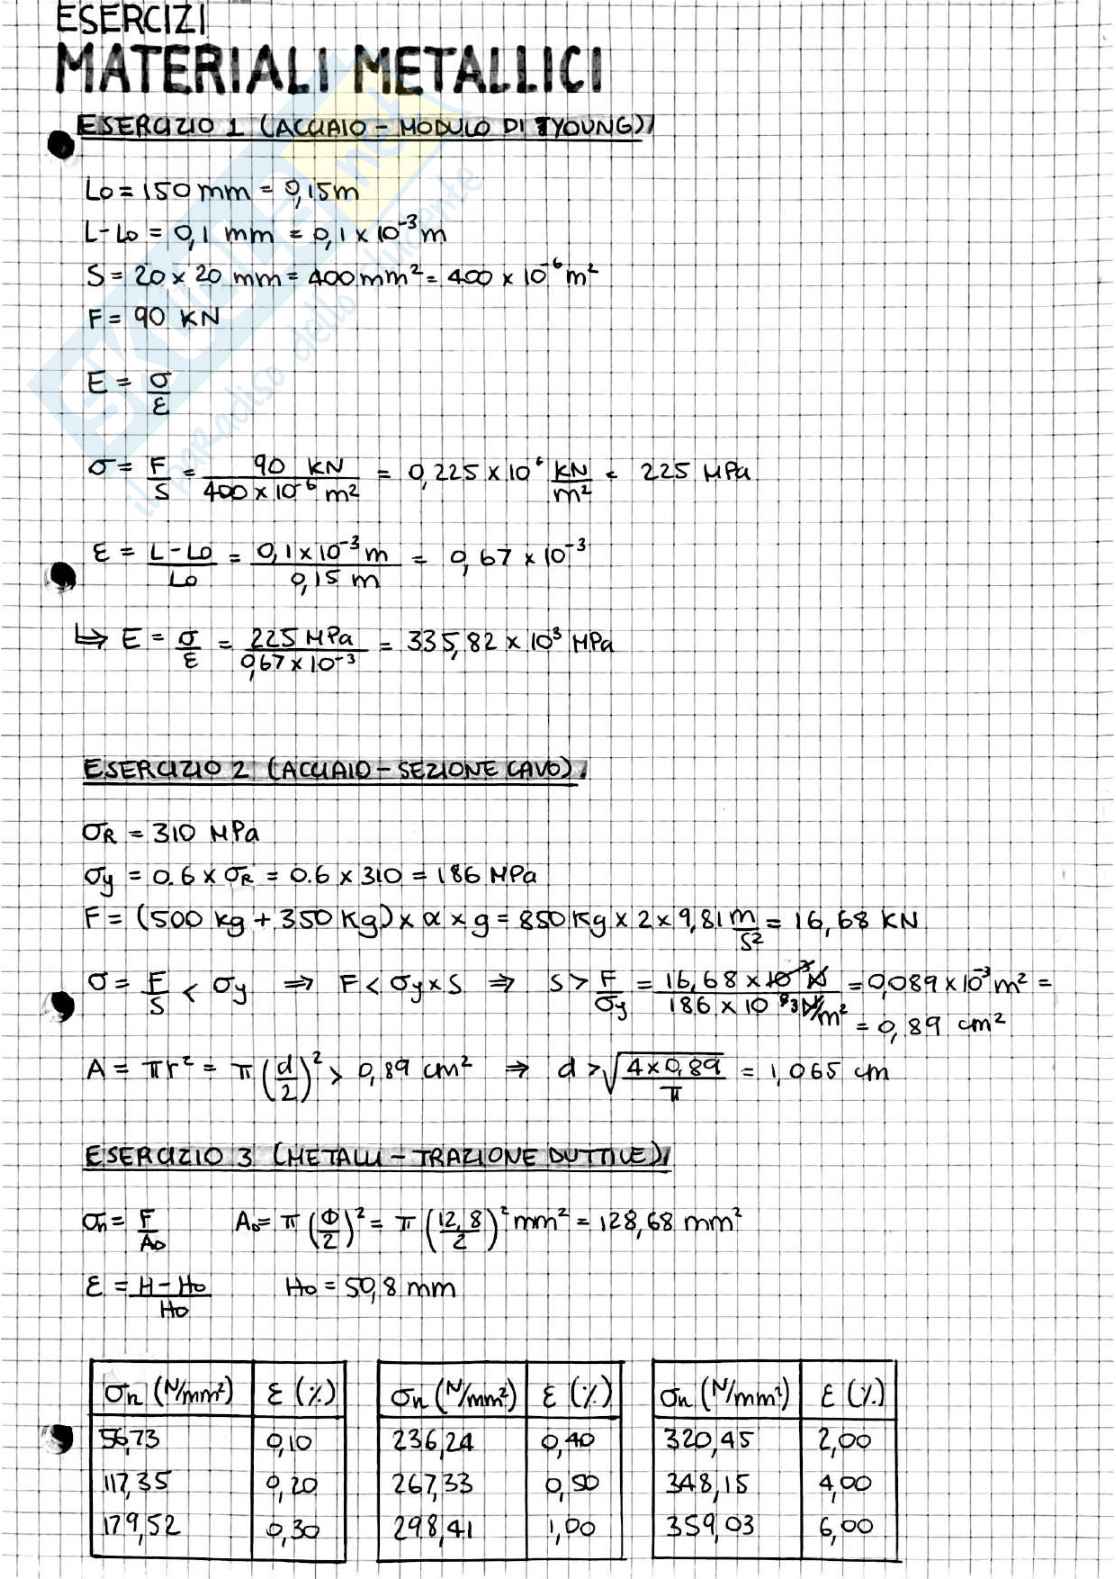 ESERCIZI
MATERIALI METALLICI
ESERCIZIO 1 (ACCIAIO - MODULO DI YOUNG)
L0 = 150 mm = 0,15 m
L-L0 = 0,1 mm = 0,1 x 10⁻³ m
S = 20 x 20 mm = 400 mm² = 400 x 10⁻⁶ m²
F = 90 KN
E = σ/ε
σ = F/S = 90 KN / 400 x 10⁻⁶ m² = 0,225 x 10⁶ KN/m² = 225 MPa
ε = L-L0/L0 = 0,1 x 10⁻³ m / 0,15 m = 0,67 x 10⁻³
↳ E = σ/ε = 225 MPa / 0,67 x 10⁻³ = 335,82 x 10³ MPa
ESERCIZIO 2 (ACCIAIO - SEZIONE CAVO)
σR = 310 MPa
σy = 0.6 x σR = 0.6 x 310 = 186 MPa
F = (500 kg + 350 kg) x α x g = 850 kg x 2 x 9,81 m/s² = 16,68 KN
σ = F/S < σy ⇒ F < σy x S ⇒ S > F/σy = 16,68 x 10³ N / 186 x 10⁶ ³ N/m² = 0,089 x 10⁻³ m² =
= 0,89 cm²
A = πr² = π(d/2)² > 0,89 cm² ⇒ d > √(4 x 0,89 / π) = 1,065 cm
ESERCIZIO 3 (METALLI - TRAZIONE DUTTILE)
σn = F/A0 A0 = π(Φ/2)² = π(12,8/2)² mm² = 128,68 mm²
ε = H-H0/H0 H0 = 50,8 mm
σn (N/mm²) ε (%) σn (N/mm²) ε (%) σn (N/mm²) ε (%)
56,73 0,10 236,24 0,40 320,45 2,00
117,35 0,20 267,33 0,50 348,15 4,00
179,52 0,30 298,41 1,00 359,03 6,00
Skuola.net
il paradiso dello studente